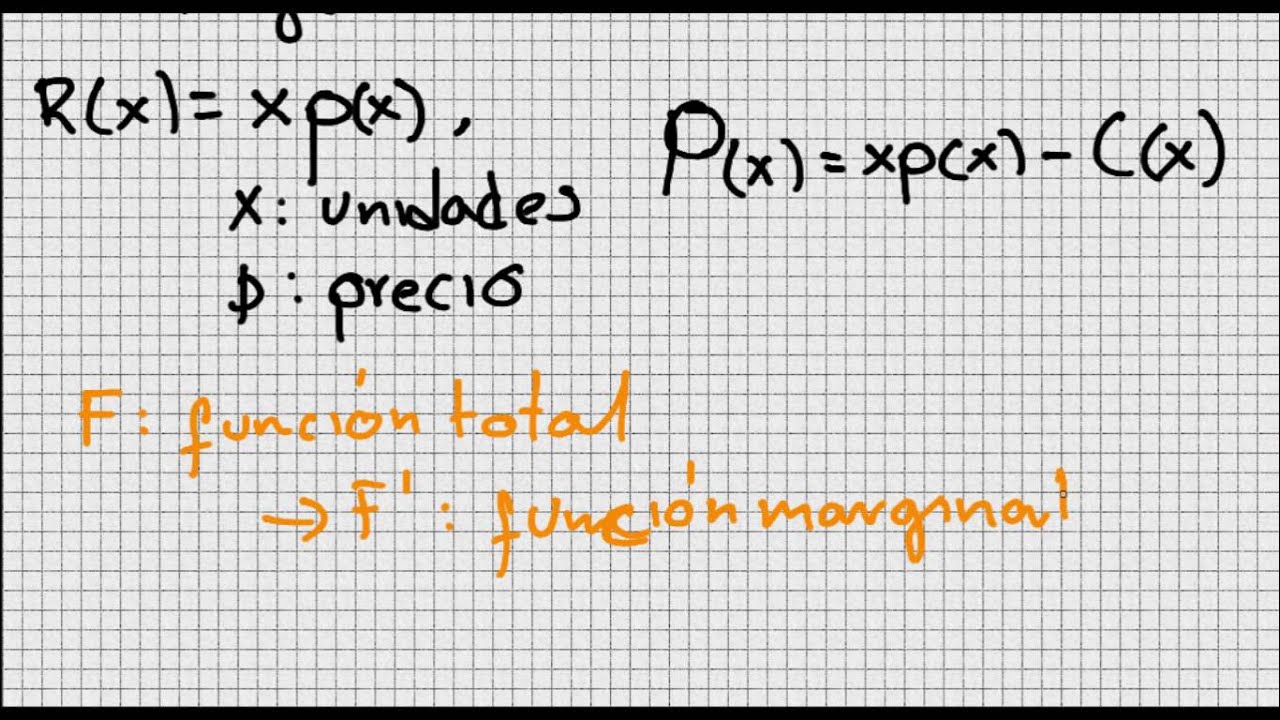 R(x) = x p(x),
x: unidades
p: precio
P(x) = xp(x) - C(x)
F: función total
→ F': función marginal